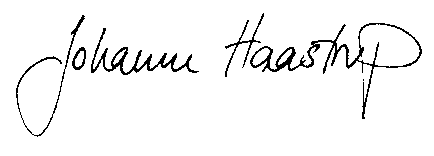 Johanne Haastrup